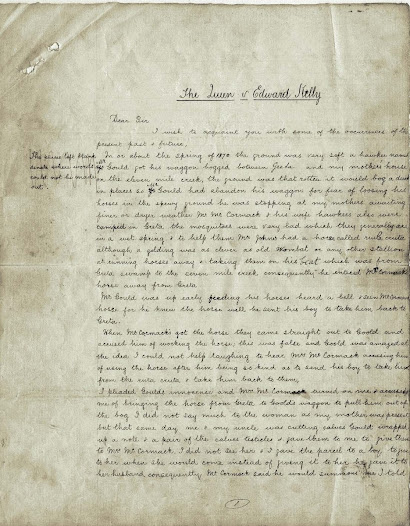 The Queen v Edward Kelly
Dear Sir
I wish to acquaint you with some of the occurrences of the
present past & future,
The places left blank
denote where words
could not be made
out.
In or about the spring of 1870 the ground was very soft a hawker named
Mr Gould got his waggon bogged between Greta and my mother's house
on the eleven mile creek, the ground was that rotten it would bog a duck
in places so Mr Gould had abandon his waggon for fear of loosing his
horses in the spewy ground he was stopping at my mothers awaiting
finer or dryer weather Mr McCormack & his wife hawkers also were
camped in Greta the mosquitoes were very bad which they generally are
in a wet spring & to help them Mr Johns had a horse called ruita cruta
although a gelding was as clever as old Wombat or any other stallion
at running horses away & taking them on his beat which was from
Greta swamp to the seven mile creek consequently he enticed McCormack's
horse away from Greta.
Mr Gould was up early feeding his horses heard a bell & seen McCormack's
horse for he knew the horse well he sent his boy to take him back to
Greta.
When McCormack's got the horse they came straight out to Gould and
accused him of working the horse; this was false and Gould was amazed at
the idea I could not help laughing to hear Mrs McCormack accusing him
of using the horse after him being so kind as to send his boy to take him
from the ruta cruta & take him back to them,
I pleaded Goulds innocence and Mrs McCormack turned on me & accused
me of bringing the horse from Greta to Goulds waggon to pull him out of
the bog I did not say much to the woman as my mother was present
but that same day me & my uncle was cutting calves Gould wrapped
up a note & a pair of the calves testicles & gave them to me to give them
to Mrs McCormack. I did not see her & I gave the parcel to a boy to give
to her when she would come instead of giving it to her he gave it to
her husband consequently McCormack said he would summons me I told